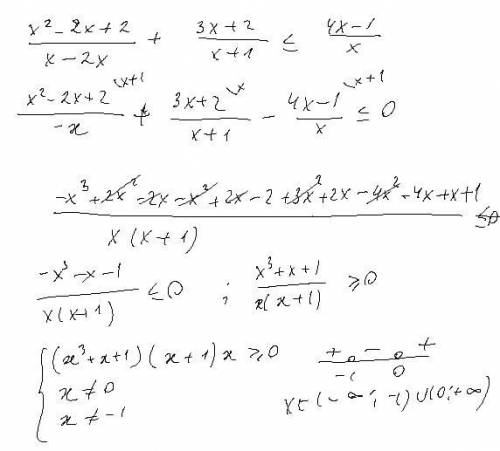 x² - 2x + 2 / x - 2x + 3x + 2 / x + 1 ≤ 4x - 1 / x
x² - 2x + 2 \x+1 / -x + 3x + 2 \x / x + 1 - 4x - 1 \x+1 / x ≤ 0
-x³ + 2x² - 2x - x² + 2x - 2 + 3x² + 2x - 4x² - 4x + x + 1 / x (x + 1) ≤ 0
-x³ - x - 1 / x(x+1) ≤ 0 ; x³ + x + 1 / x(x+1) ≥ 0
{ (x³ + x + 1) (x + 1) x ≥ 0 + - +
x ≠ 0 -1 0
x ≠ -1 x ∈ (-∞; -1) ∪ (0; +∞)